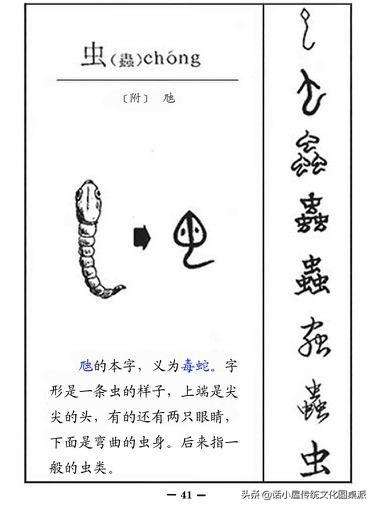 虫(蟲)chóng
〔附〕 虺
虺的本字，义为毒蛇。字
形是一条虫的样子，上端是尖
尖的头，有的还有两只眼睛，
下面是弯曲的虫身。后来指一
般的虫类。
— 41 —
蟲
蟲
蟲
虫
头条 @诺小屋传统文化图桌派